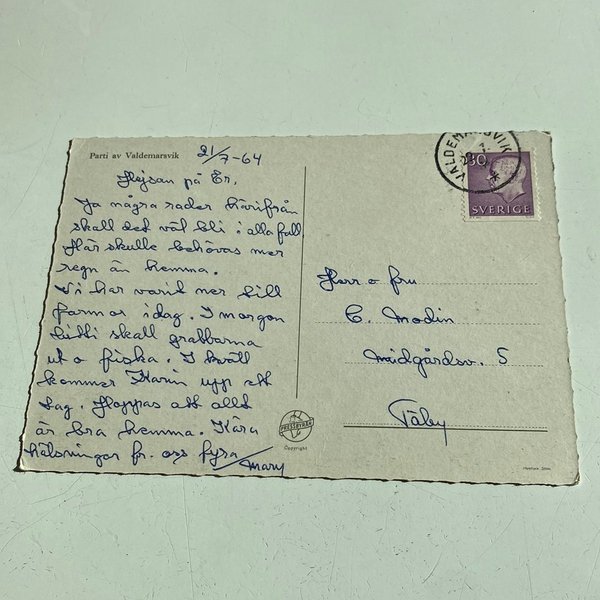 Parti av Valdemarsvik
21/7-64
Hejsan på Er.
Ja några rader härifrån
skall det väl bli i alla fall
Här skulle behövas mer
regn än hemma.
Vi har varit ner till
farmor idag. I morgon
bitti skall grabbarna
ut o fiska. I kväll
kommer Karin upp ett
tag. Hoppas att allt
är bra hemma. Kära
hälsningar fr. oss fyra
/Mary
VALDEMARSVIK
30
SVERIGE
Herr o fru
C. Modin
Midgårdsv. 5
Täby
PRESSBYRÅN
Copyright